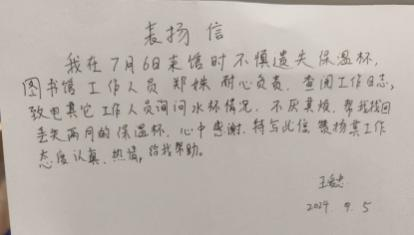 表扬信
我在7月6日来馆时不慎遗失保温杯,
图书馆工作人员 郑姝 耐心负责, 查阅工作日志,
致电其它工作人员询问水杯情况, 不厌其烦, 帮我找回
丢失两月的保温杯. 心中感谢. 特与此信赞扬其工作
态度认真、热情, 给我帮助。
2024. 9. 5